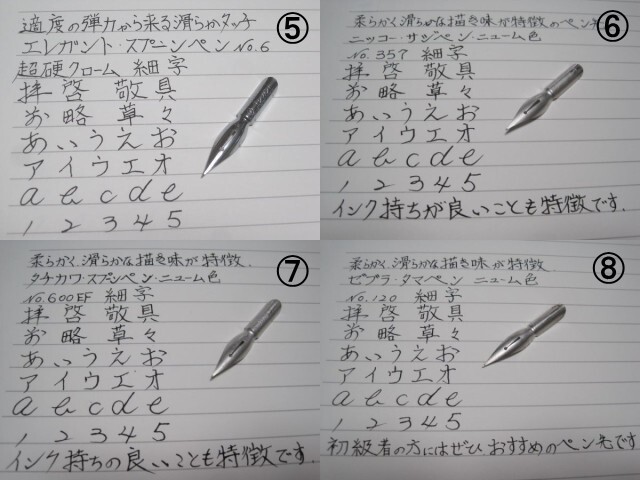 ⑤
適度の弾力から来る滑らかタッチ
エレガント・スプーンペン No.6
超硬クローム 細字
拝啓 敬具
前略 草々
あいうえお
アイウエオ
a b c d e
1 2 3 4 5
⑥
柔らかく滑らかな描き味が特徴のペン先
ニッコー・サジペン・ニューム色
No.357 細字
拝啓 敬具
前略 草々
あいうえお
アイウエオ
a b c d e
1 2 3 4 5
インク持ちが良いことも特徴です.
⑦
柔らかく、滑らかな描き味が特徴.
タチカワ・スプーンペン・ニューム色
No.600EF 細字
拝啓 敬具
前略 草々
あいうえお
アイウエオ
a b c d e
1 2 3 4 5
インク持ちの良いことも特徴です.
⑧
柔らかく、滑らかな描き味が特徴
ゼブラ・タマペン ニューム色
No.120 細字
拝啓 敬具
前略 草々
あいうえお
アイウエオ
a b c d e
1 2 3 4 5
初級者の方にはぜひ おすすめのペン先です